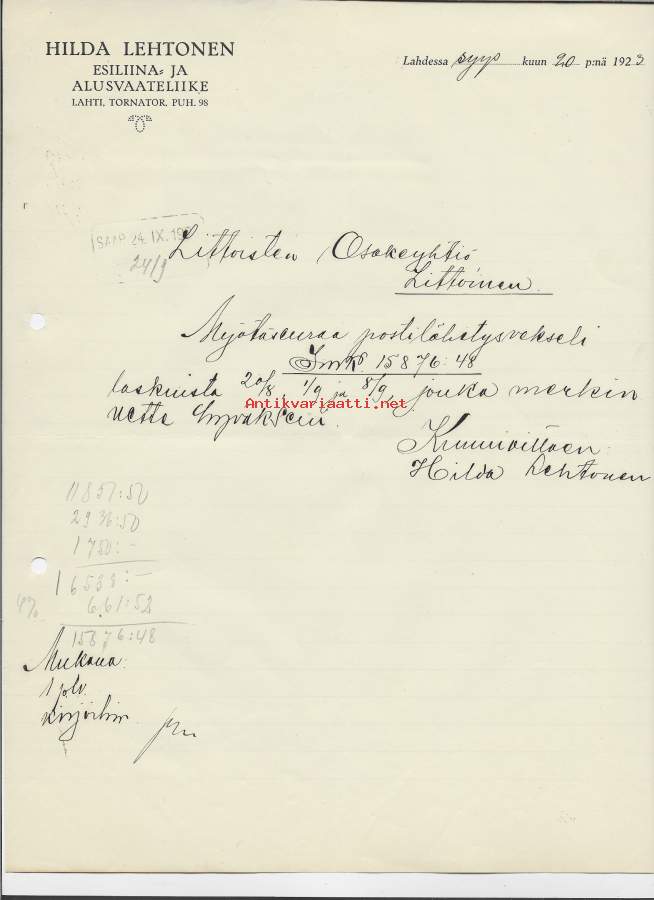 HILDA LEHTONEN
ESILIINA- JA
ALUSVAATELIIKE
LAHTI, TORNATOR, PUH. 98
Lahdessa syys kuun 20 p:nä 1923
SAAP 24. IX. 19
24/9
Littoisten Osakeyhtiö
Littoinen.
Myötäseuraa postilähetysvekseli
Smk 15876:48
laskuista 20/8 1/9 ja 8/9, jonka merkin
nette hyväksein.
Antikvariaatti.net
Kunnioittaen
Hilda Lehtonen
11851:50
2936:50
1750:-
16538:-
4% 661:52
15876:48
Mukana:
1 plv.